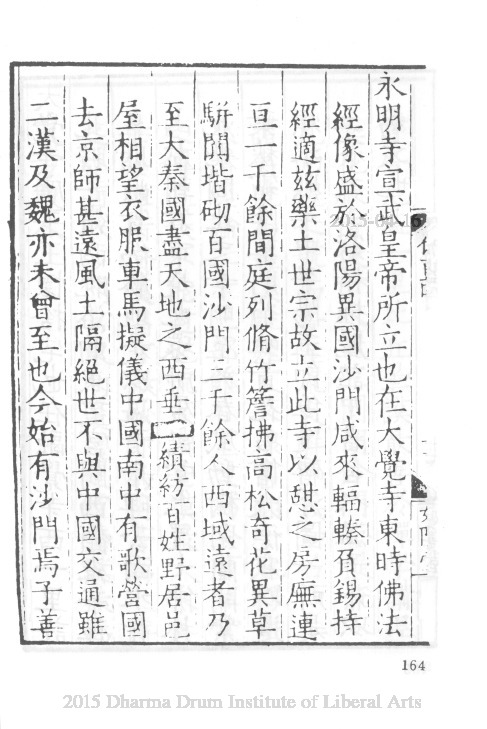 永明寺宣武皇帝所立也在大覺寺東時佛法
經像盛於洛陽異國沙門咸來輻輳負錫持
經適茲藥土世宗故立此寺以憇之房廡連
亘一千餘間庭列脩竹簷拂高松奇花異草
駢闐堦砌百國沙門三千餘人西域遠者乃
至大秦國盡天地之西垂績紡百姓野居邑
屋相望衣服車馬擬儀中國南中有歌營國
去京師甚遠風土隔絕世不與中國交通雖
二漢及魏亦未曾至也今始有沙門焉子善
164
2015 Dharma Drum Institute of Liberal Arts